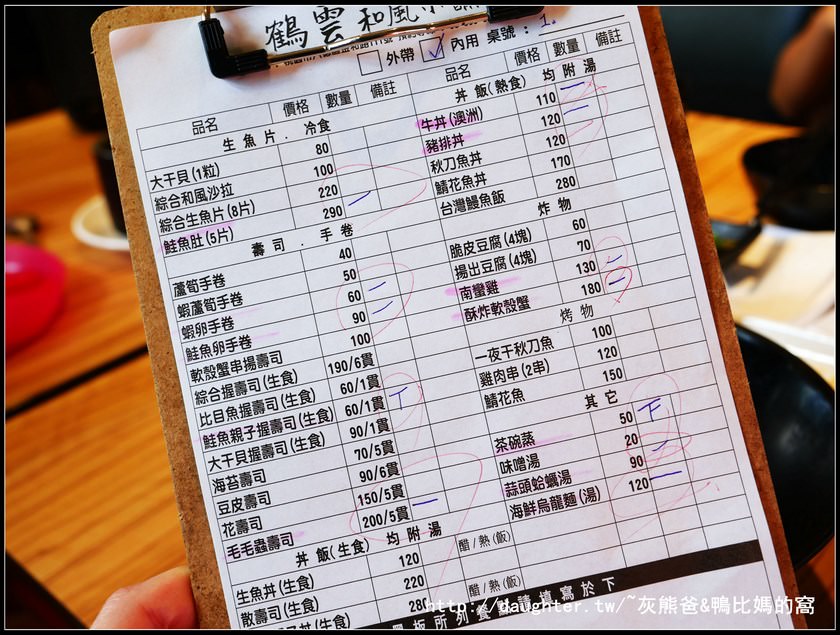 鶴雲和風
外帶 ✓ 內用 桌號：1.
品名 價格 數量 備註
生魚片．冷食
大干貝(1粒) 80
綜合和風沙拉 100
綜合生魚片(8片) 220
鮭魚肚(5片) 290 一
壽司．手卷
蘆筍手卷 40
蝦蘆筍手卷 50
蝦卵手卷 60 二
鮭魚卵手卷 90 二
軟殼蟹串揚壽司 100
綜合握壽司(生食) 190/6貫
比目魚握壽司(生食) 60/1貫
鮭魚親子握壽司(生食) 60/1貫 丅
大干貝握壽司(生食) 90/1貫
海苔壽司 70/5貫
豆皮壽司 90/6貫
花壽司 150/5貫
毛毛蟲壽司 200/5貫 一
丼飯(生食) 均附湯
生魚丼(生食) 120 醋/熱(飯)
散壽司(生食) 220
280 醋/熱(飯)
品名 價格 數量 備註
丼飯(熱食) 均附湯
牛丼(澳洲) 110 一
豬排丼 120 一
秋刀魚丼 120
鯖花魚丼 170
台灣鰻魚飯 280
炸物
脆皮豆腐(4塊) 60
揚出豆腐(4塊) 70
南蠻雞 130 二
酥炸軟殼蟹 180 二
烤物
一夜干秋刀魚 100
雞肉串(2串) 120
鯖花魚 150
其它
茶碗蒸 50 下
味噌湯 20
蒜頭蛤蠣湯 90 二
海鮮烏龍麵(湯) 120 一
板所列餐 請填寫於下
http://daughter.tw/~灰熊爸&鴨比媽的窩